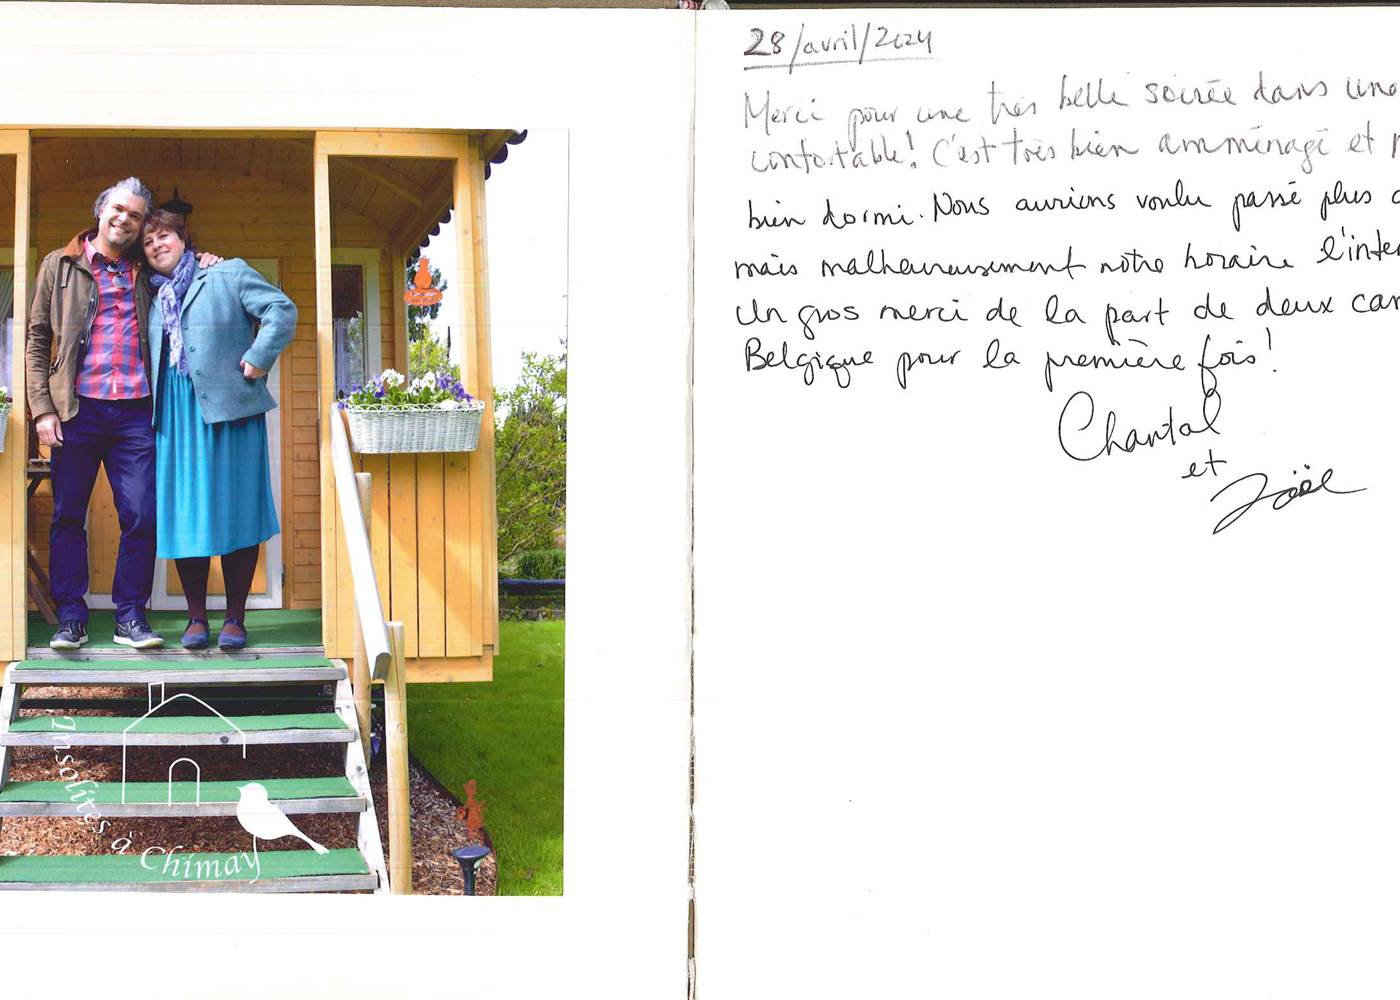 Insolites à Chimay
28/avril/2024
Merci pour une très belle soirée dans une
confortable! C'est très bien amménagé et
bien dormi. Nous aurions voulu passé plus
mais malheureusement notre horaire l'inter
Un gros merci de la part de deux can
Belgique pour la première fois!
Chantal
et
Joël